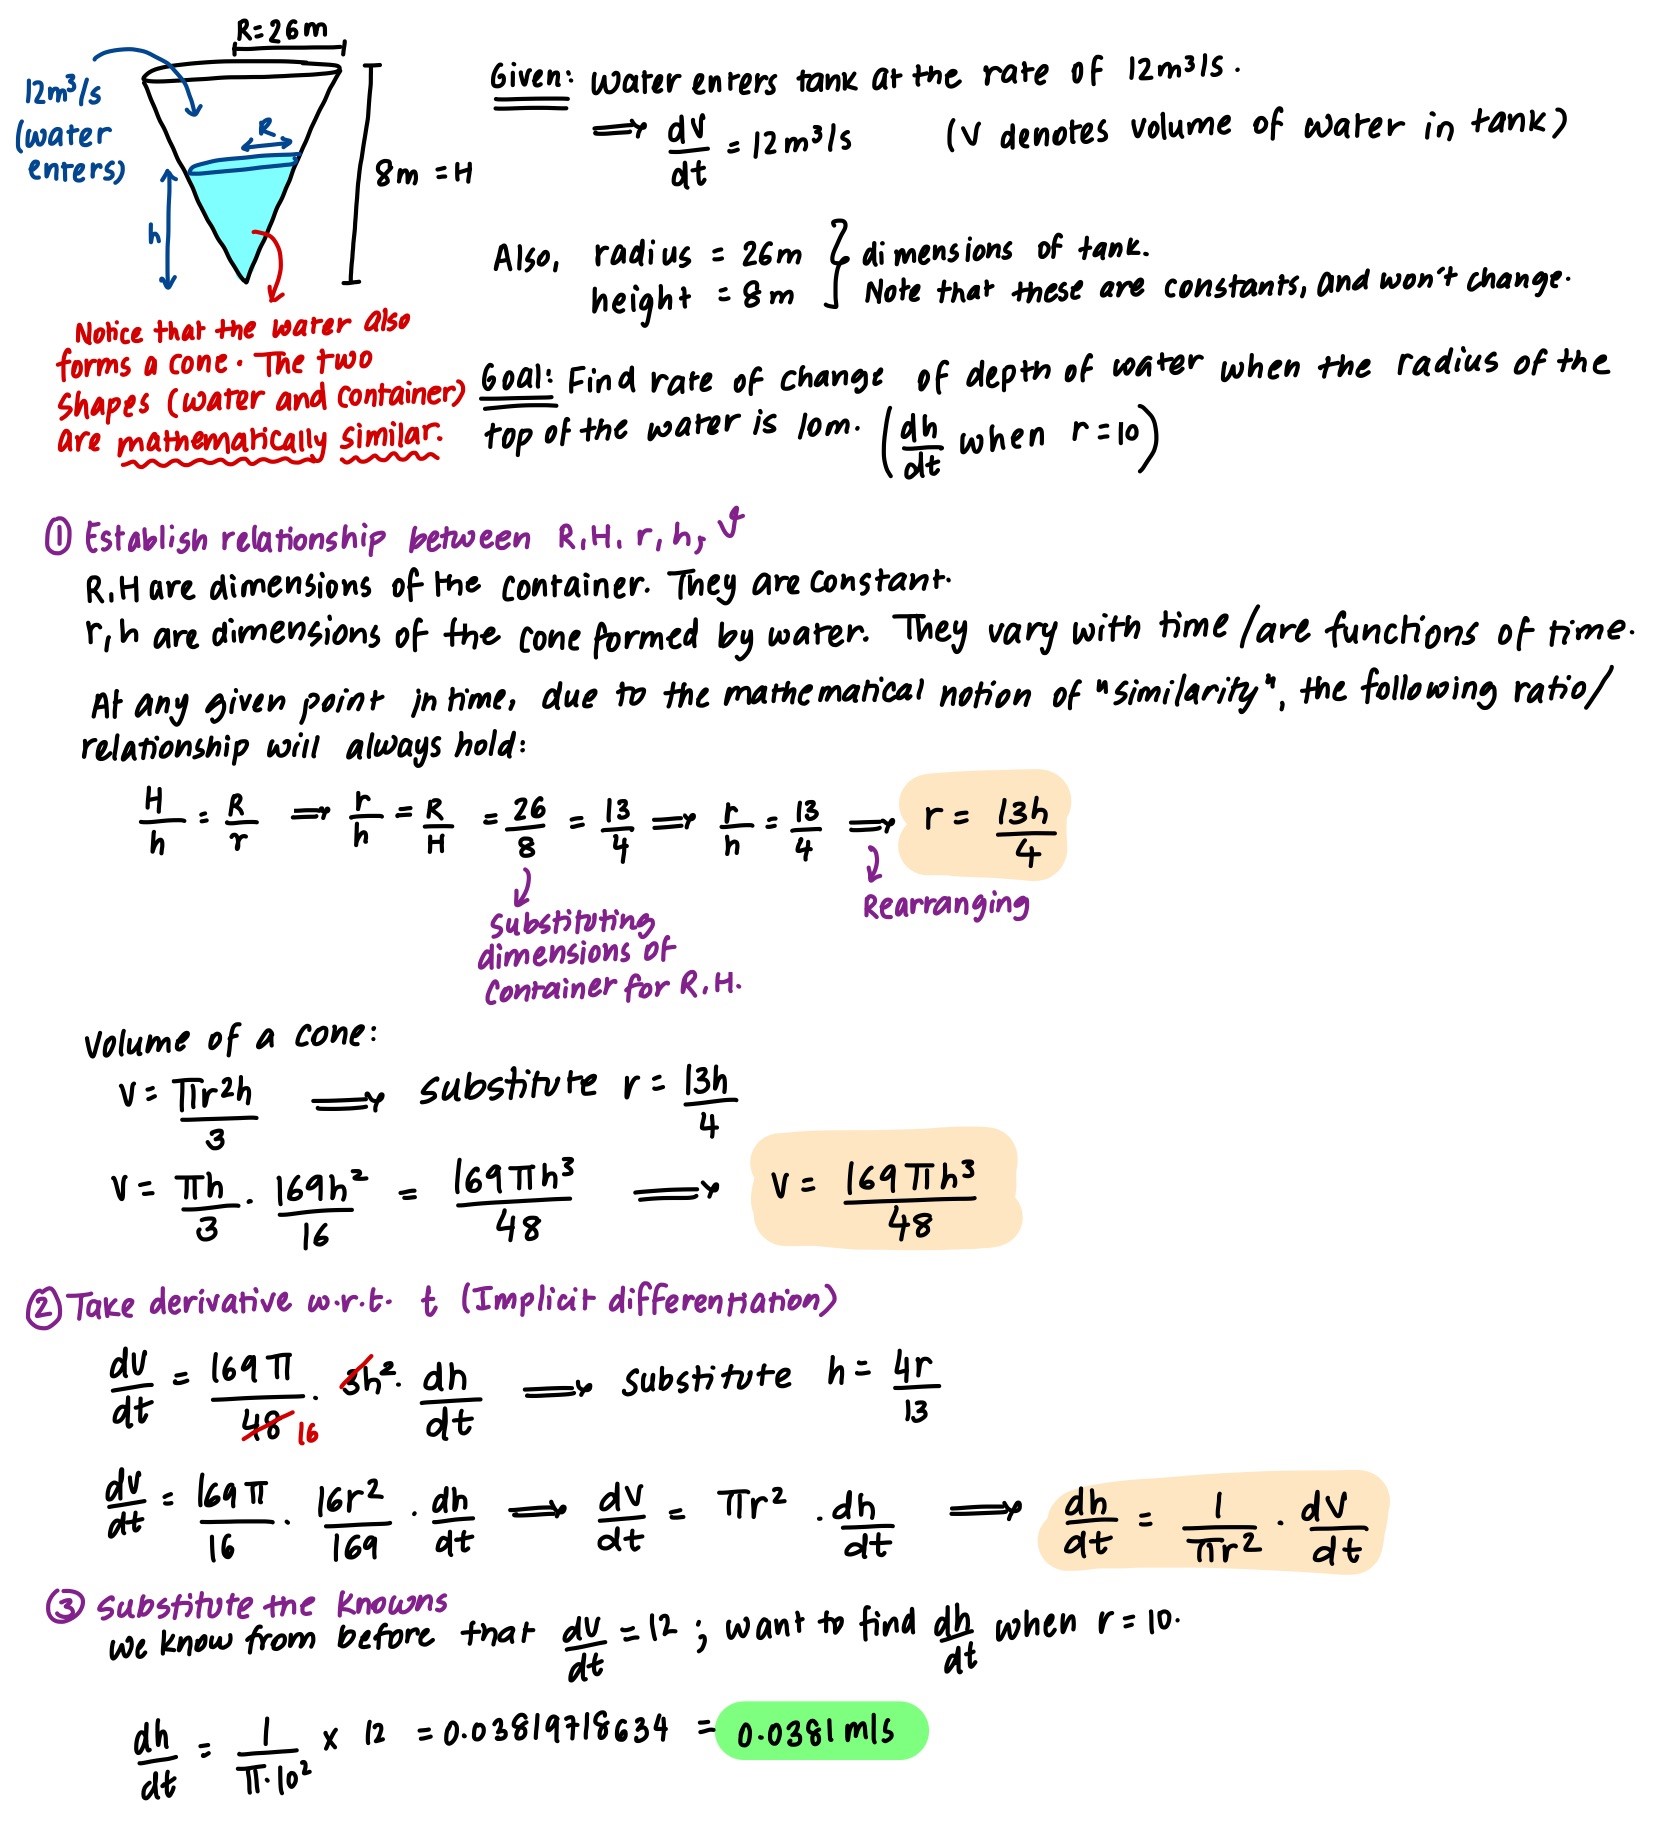 R=26m
12m³/s
(water
enters)
R
h
8m = H
Notice that the water also
forms a cone. The two
shapes (water and container)
are mathematically similar.
Given: Water enters tank at the rate of 12m³/s.
⟹ dV/dt = 12m³/s (V denotes volume of water in tank)
Also, radius = 26m } dimensions of tank.
height = 8m } Note that these are constants, and won't change.
Goal: Find rate of change of depth of water when the radius of the
top of the water is 10m. (dh/dt when r=10)
① Establish relationship between R,H,r,h,V
R,H are dimensions of the container. They are constant.
r,h are dimensions of the cone formed by water. They vary with time/are functions of time.
At any given point in time, due to the mathematical notion of "similarity", the following ratio/
relationship will always hold:
H/h = R/r ⟹ r/h = R/H = 26/8 = 13/4 ⟹ r/h = 13/4 ⟹ r = 13h/4
Substituting
dimensions of
container for R,H.
Rearranging
Volume of a cone:
V = πr²h/3 ⟹ substitute r = 13h/4
V = πh/3 · 169h²/16 = 169πh³/48 ⟹ V = 169πh³/48
② Take derivative w.r.t. t (Implicit differentiation)
dV/dt = 169π/48 16 · 3h² · dh/dt ⟹ substitute h = 4r/13
dV/dt = 169π/16 · 16r²/169 · dh/dt ⟹ dV/dt = πr² · dh/dt ⟹ dh/dt = 1/πr² · dV/dt
③ Substitute the knowns
We know from before that dV/dt = 12 ; want to find dh/dt when r = 10.
dh/dt = 1/π·10² × 12 = 0.03819718634 = 0.0381 m/s